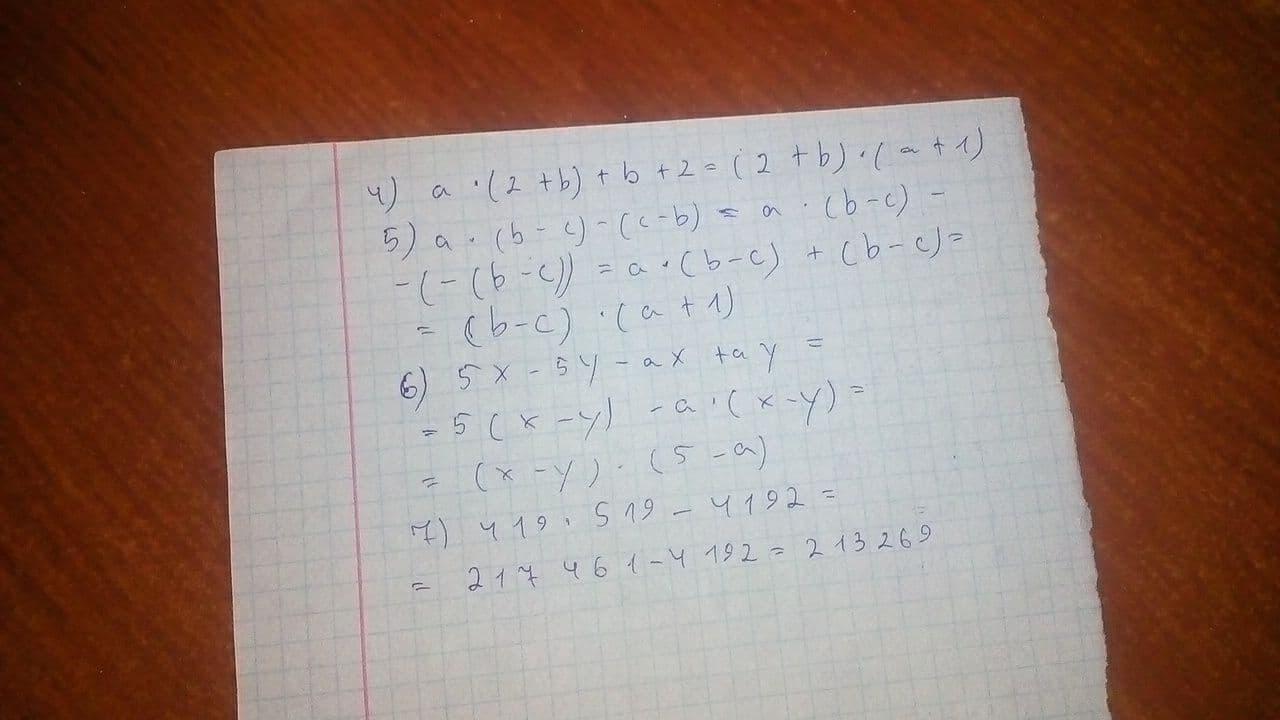 4) a · (2 + b) + b + 2 = (2 + b) · (a + 1)
5) a · (b - c) - (c - b) = a · (b - c) -
- (- (b - c)) = a · (b - c) + (b - c) =
= (b - c) · (a + 1)
6) 5x - 5y - ax + ay =
= 5 (x - y) - a · (x - y) =
= (x - y) · (5 - a)
7) 419 · 519 - 4192 =
= 217 461 - 4 192 = 213 269